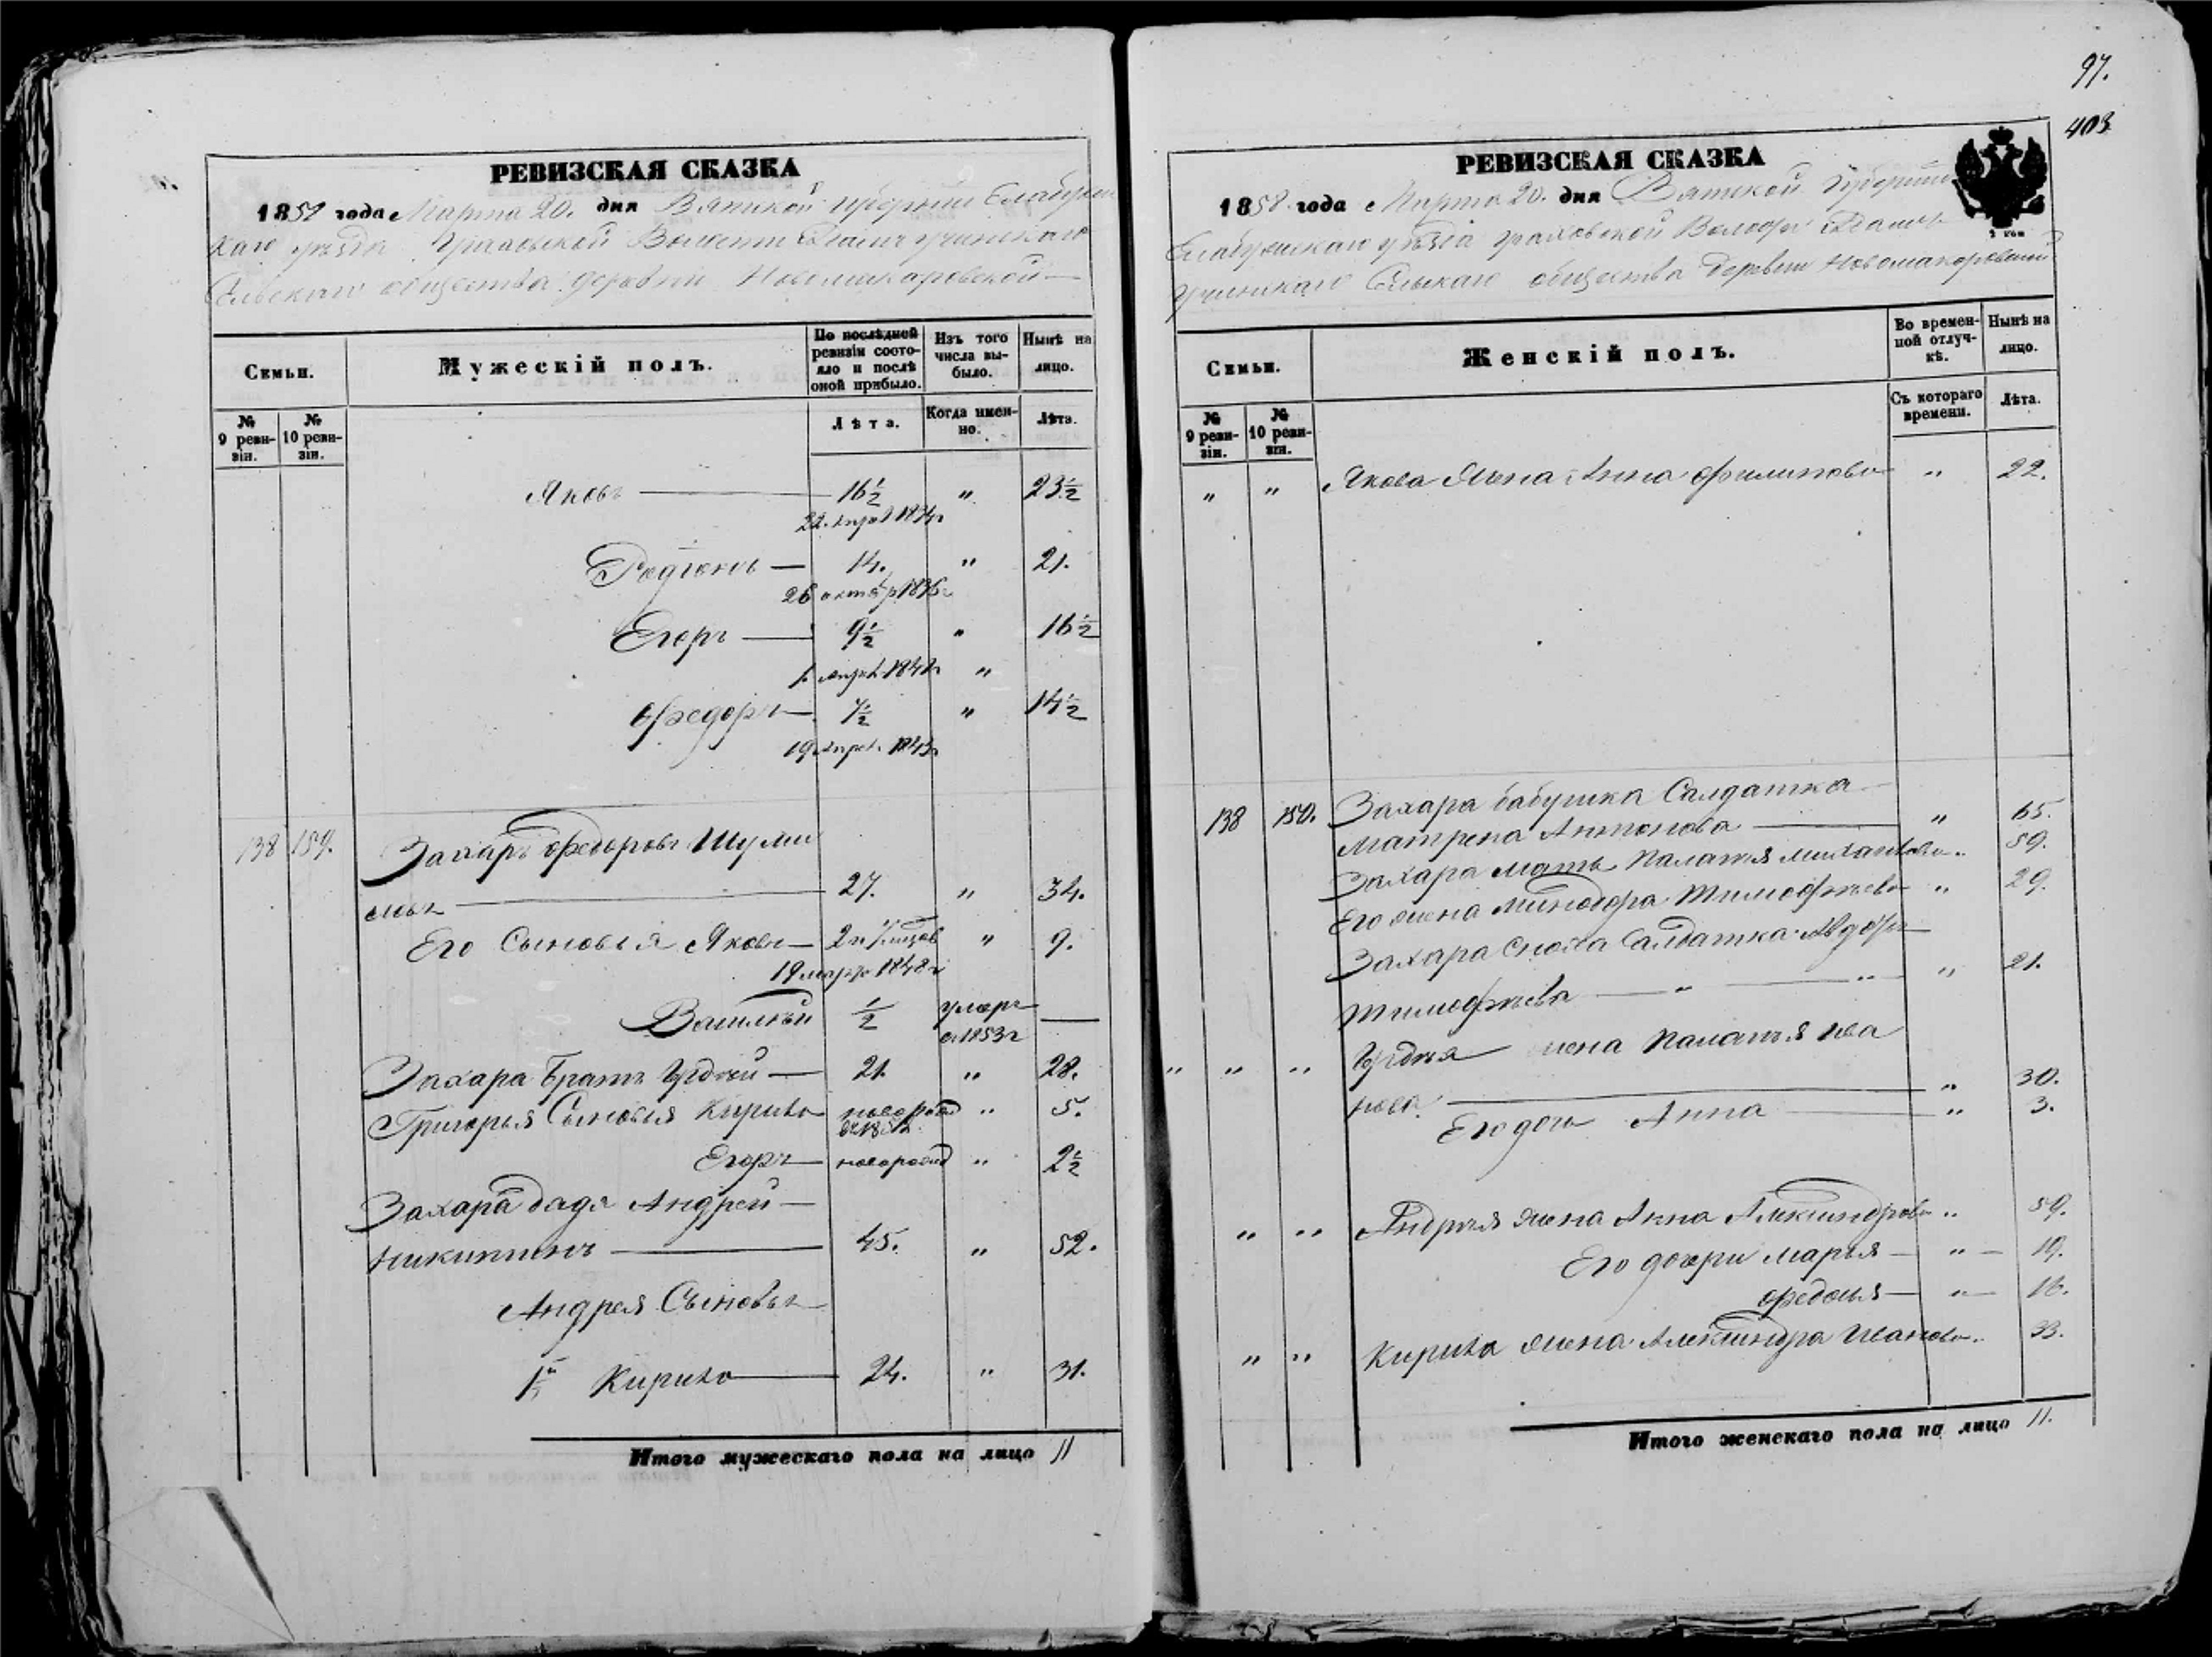 97.
403
РЕВИЗСКАЯ СКАЗКА
1858 года Марта 20. дня Вятской губернии Елабуж
скаго уѣзда Граховской Волости
Сельскаго общества деревни Новомакаровской
Семьи.
Мужескій полъ.
По послѣдней ревизіи состояло и послѣ оной прибыло.
Изъ того числа выбыло.
Нынѣ на лицо.
№ 9 ревизіи.
№ 10 ревизіи.
Лѣта.
Когда именно.
Лѣта.
Яковъ 16½ " 23½
22. Апрѣл 1834г
Родіонъ 14. " 21.
26 октябр 1836г
Егоръ 9½ " 16½
1. апрѣл 1841г "
Ѳедоръ ½ " 14½
19 Апрѣл. 1843г
138 159. Захаръ Ѳедоровъ Шуми
ловъ 27. " 34.
Его Сыновья Яковъ 2 " 9.
19 март 1848г
Василій ½ умеръ
в 1853г
Захара Братъ Григорій 21. " 28.
Григорья Сыновья Кирило новорожд " 5.
Егоръ новорожд " 2½
Захара дядя Андрей
Никитинъ 45. " 52.
Андрея Сыновья
1й Кирило 24. " 31.
Итого мужескаго пола на лицо 11
РЕВИЗСКАЯ СКАЗКА
1858 года Марта 20. дня Вятской Губерніи
Елабужскаго уѣзда Граховской Волости
Сельскаго общества деревни Новомакаровской
Семьи.
Женскій полъ.
Во временной отлучкѣ.
Нынѣ на лицо.
№ 9 ревизіи.
№ 10 ревизіи.
Съ котораго времени.
Лѣта.
" " Якова Жена Анна Филипова " 22.
138 150. Захара бабушка Салдатка
Матрена Антонова " 65.
Захара мать Палагья Михайлова " 59.
Его жена Минодора Тимофѣева " 29.
Захара сноха Салдатка Авдотья
Тимофѣева " 21.
" " " Григорья жена Палагья Ива
нова. " 30.
Его дочь Анна " 3.
" " Андрѣя жена Анна Александрова " 59.
Его дочери Марья " 19.
Ѳедосья " 16.
" " Кирила жена Александра Иванова " 33.
Итого женскаго пола на лицо 11.